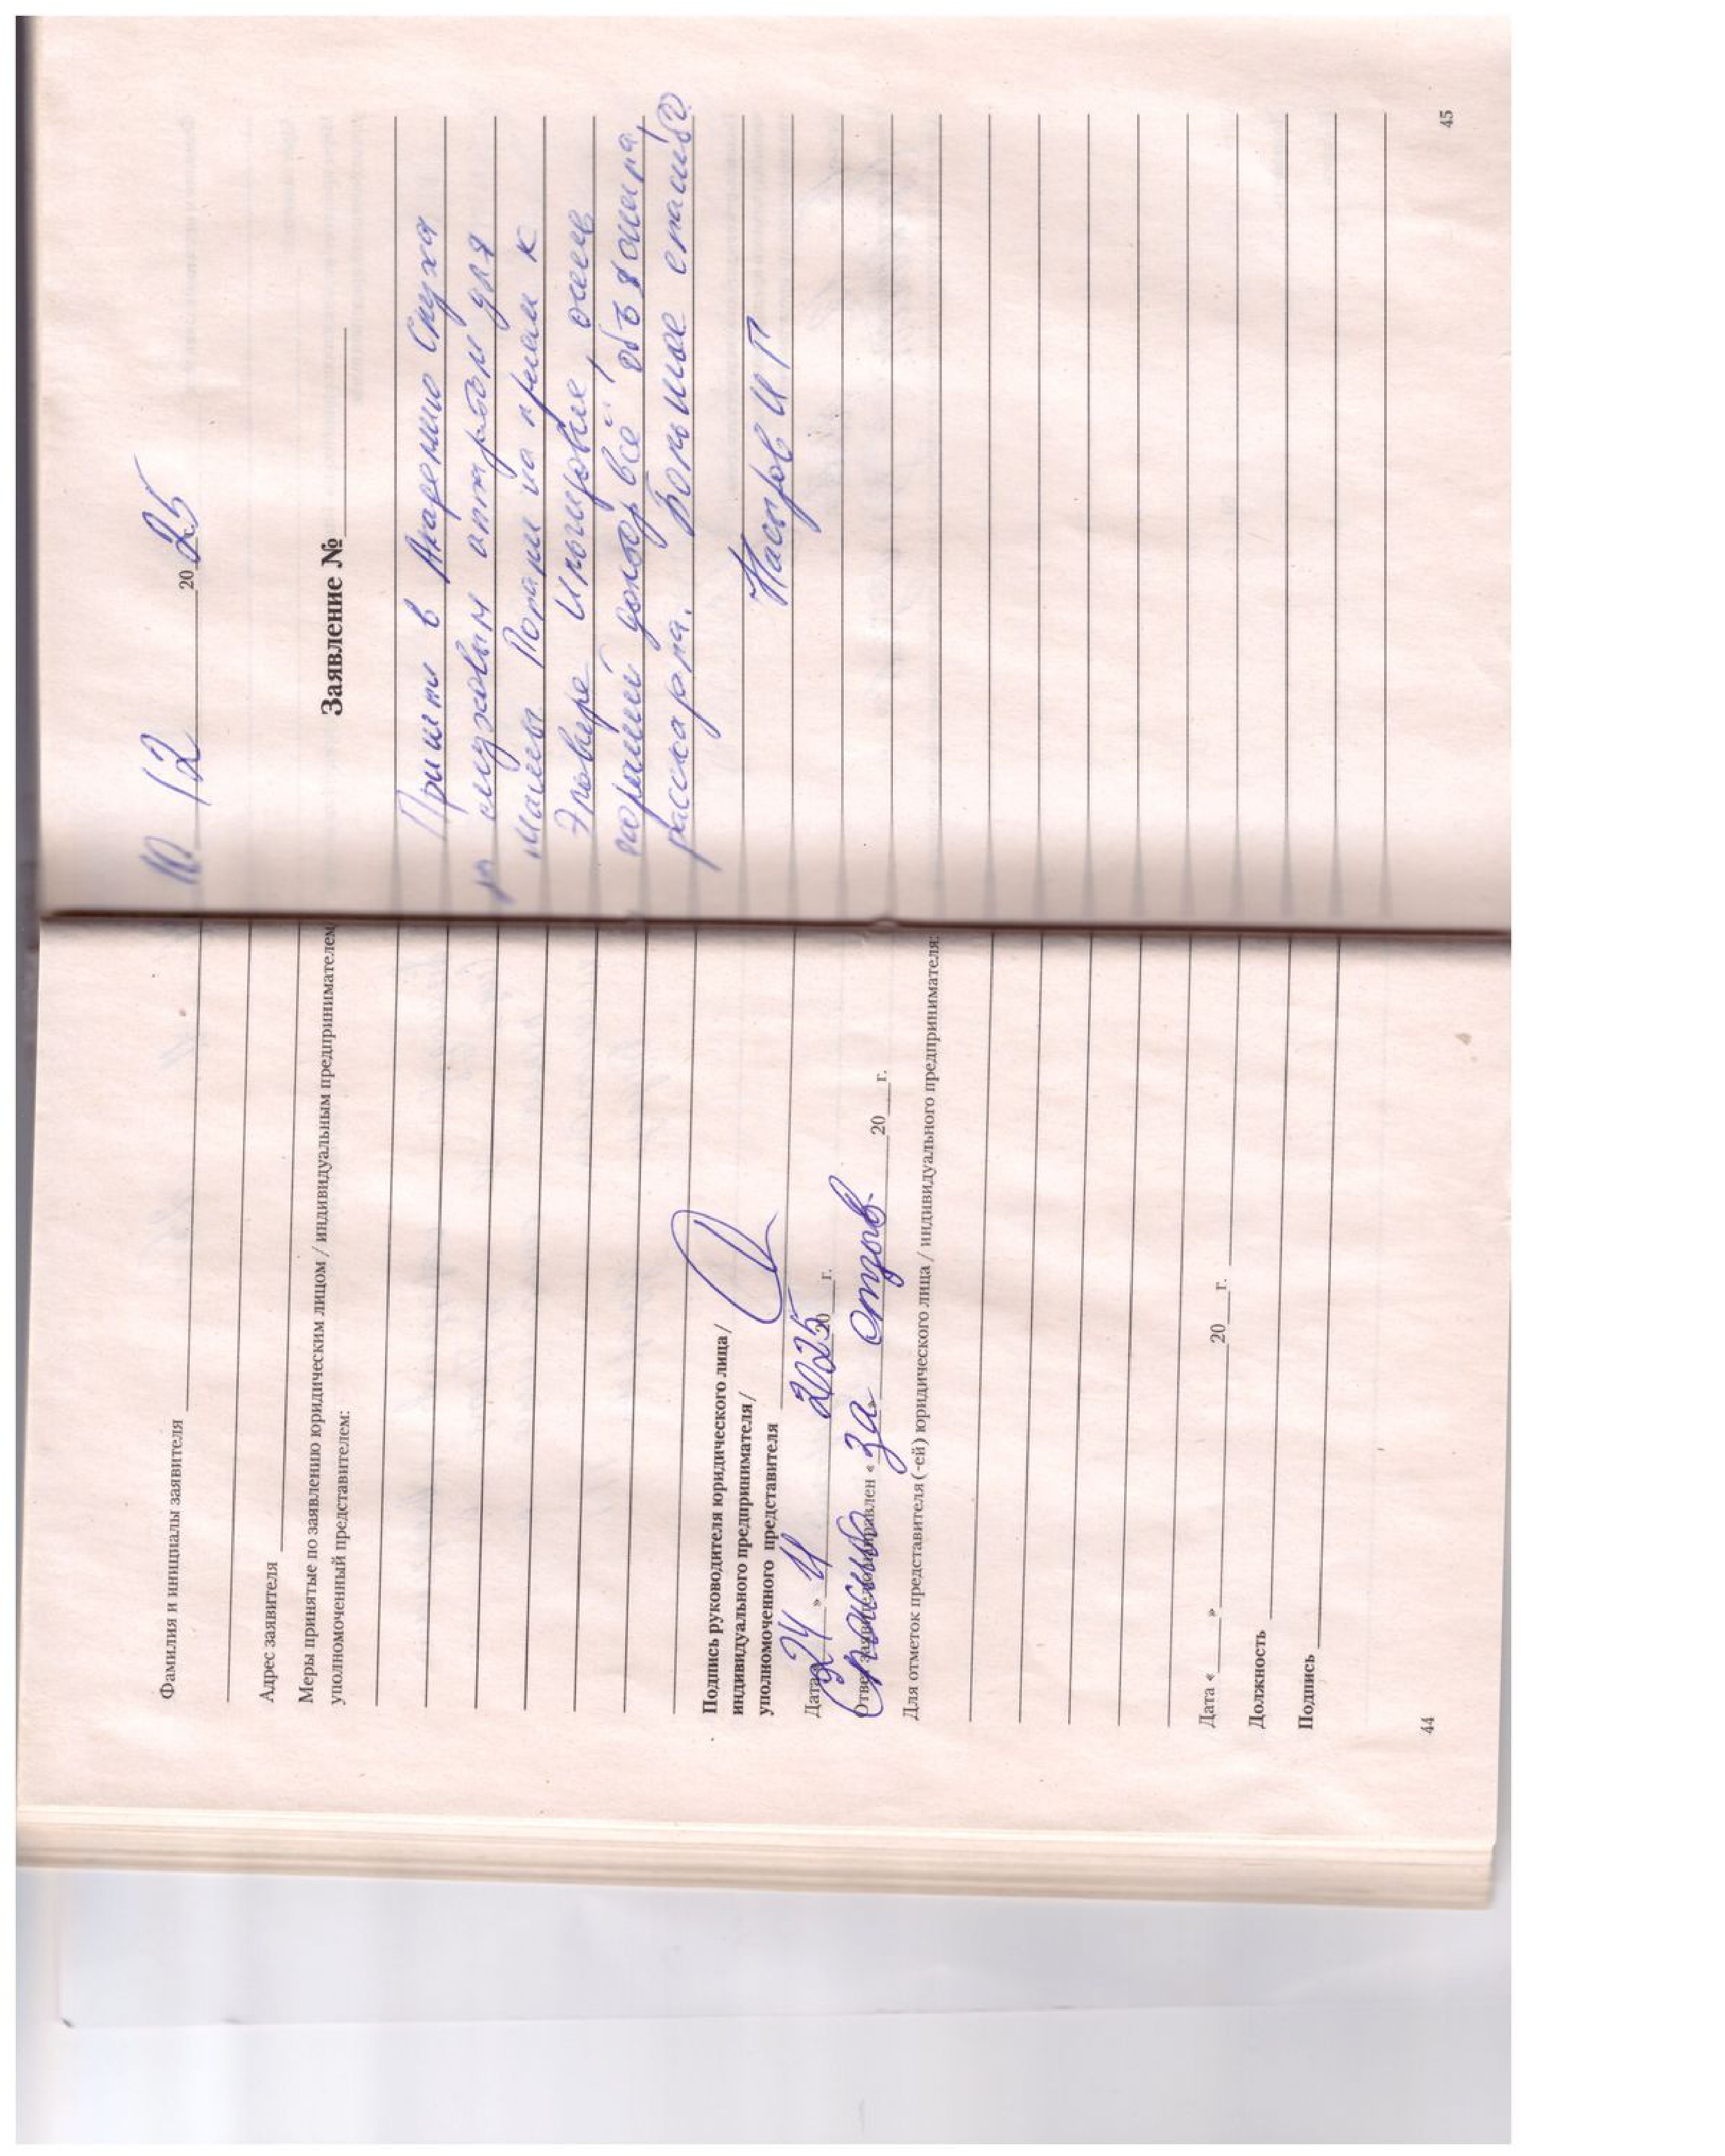 Фамилия и инициалы заявителя
Адрес заявителя
Меры принятые по заявлению юридическим лицом / индивидуальным предпринимателем
уполномоченный представителем:
Подпись руководителя юридического лица /
индивидуального предпринимателя/
уполномоченного представителя
Дата « 24 » 11 2025 20 г.
Ответ заявителю направлен « » 20 г.
Спасибо за отзыв.
Для отметок представителя (-ей) юридического лица / индивидуального предпринимателя:
Дата « » 20 г.
Должность
Подпись
44
10 12 2025
Заявление №
Пришли в Академию Слуха
за слуховым аппаратом для
мамы Попали на прием к
Эльвире , очень
хороший доктор всё объяснила,
рассказала. Большое спасибо
И Г
45